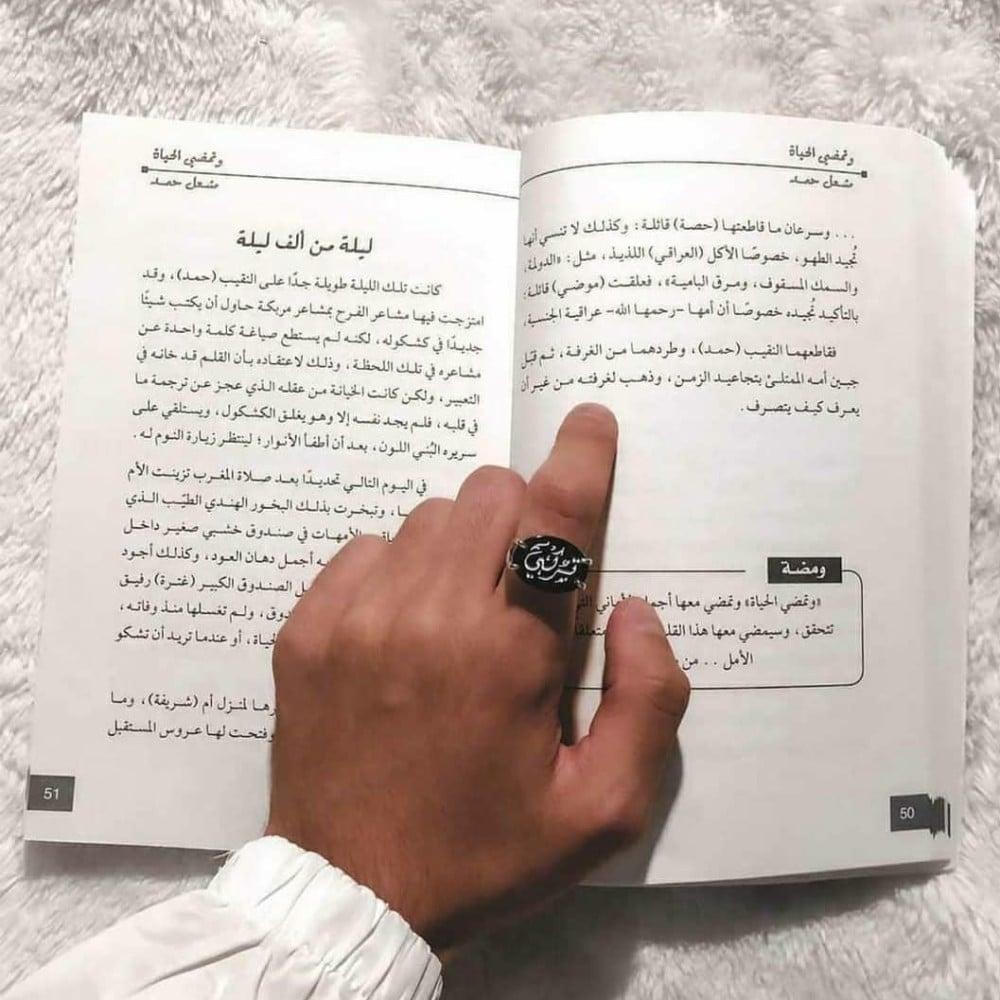 وتمضي الحياة
مشعل حمد
... وسرعان ما قاطعتها (حصة) قائلة: وكذلك لا تنسي أنها
تُجيد الطهو، خصوصًا الأكل (العراقي) اللذيذ، مثل: «الدولمة،
والسمك المسقوف، ومرق البامية»، فعلقت (موضي) قائلة:
بالتأكيد تُجيده خصوصًا أن أمها -رحمها الله- عراقية الجنسية،
فقاطعهما النقيب (حمد)، وطردهما من الغرفة، ثم قبّل
جبين أمه الممتلئ بتجاعيد الزمن، وذهب لغرفته من غير أن
يعرف كيف يتصرف.
ومضة
«وتمضي الحياة» وتمضي معها أجمل الأماني التي
تتحقق، وسيمضي معها هذا
الأمل .. من
50
وتمضي الحياة
مشعل حمد
ليلة من ألف ليلة
كانت تلك الليلة طويلة جدًا على النقيب (حمد)، وقد
امتزجت فيها مشاعر الفرح بمشاعر مربكة حاول أن يكتب شيئًا
جديدًا في كشكوله، لكنه لم يستطع صياغة كلمة واحدة عن
مشاعره في تلك اللحظة، وذلك لاعتقاده بأن القلم قد خانه في
التعبير، ولكن كانت الخيانة من عقله الذي عجز عن ترجمة ما
في قلبه، فلم يجد نفسه إلا وهو يغلق الكشكول، ويستلقي على
سريره البُني اللون، بعد أن أطفأ الأنوار؛ لينتظر زيارة النوم له.
في اليوم التالي تحديدًا بعد صلاة المغرب تزينت الأم
وتبخرت بذلك البخور الهندي الطيّب الذي
الأمهات في صندوق خشبي صغير داخل
أجمل دهان العود، وكذلك أجود
الصندوق الكبير (غترة) رفيق
ولم تغسلها منذ وفاته،
أو عندما تريد أن تشكو
لمنزل أم (شريفة)، وما
وفتحت لها عروس المستقبل
51